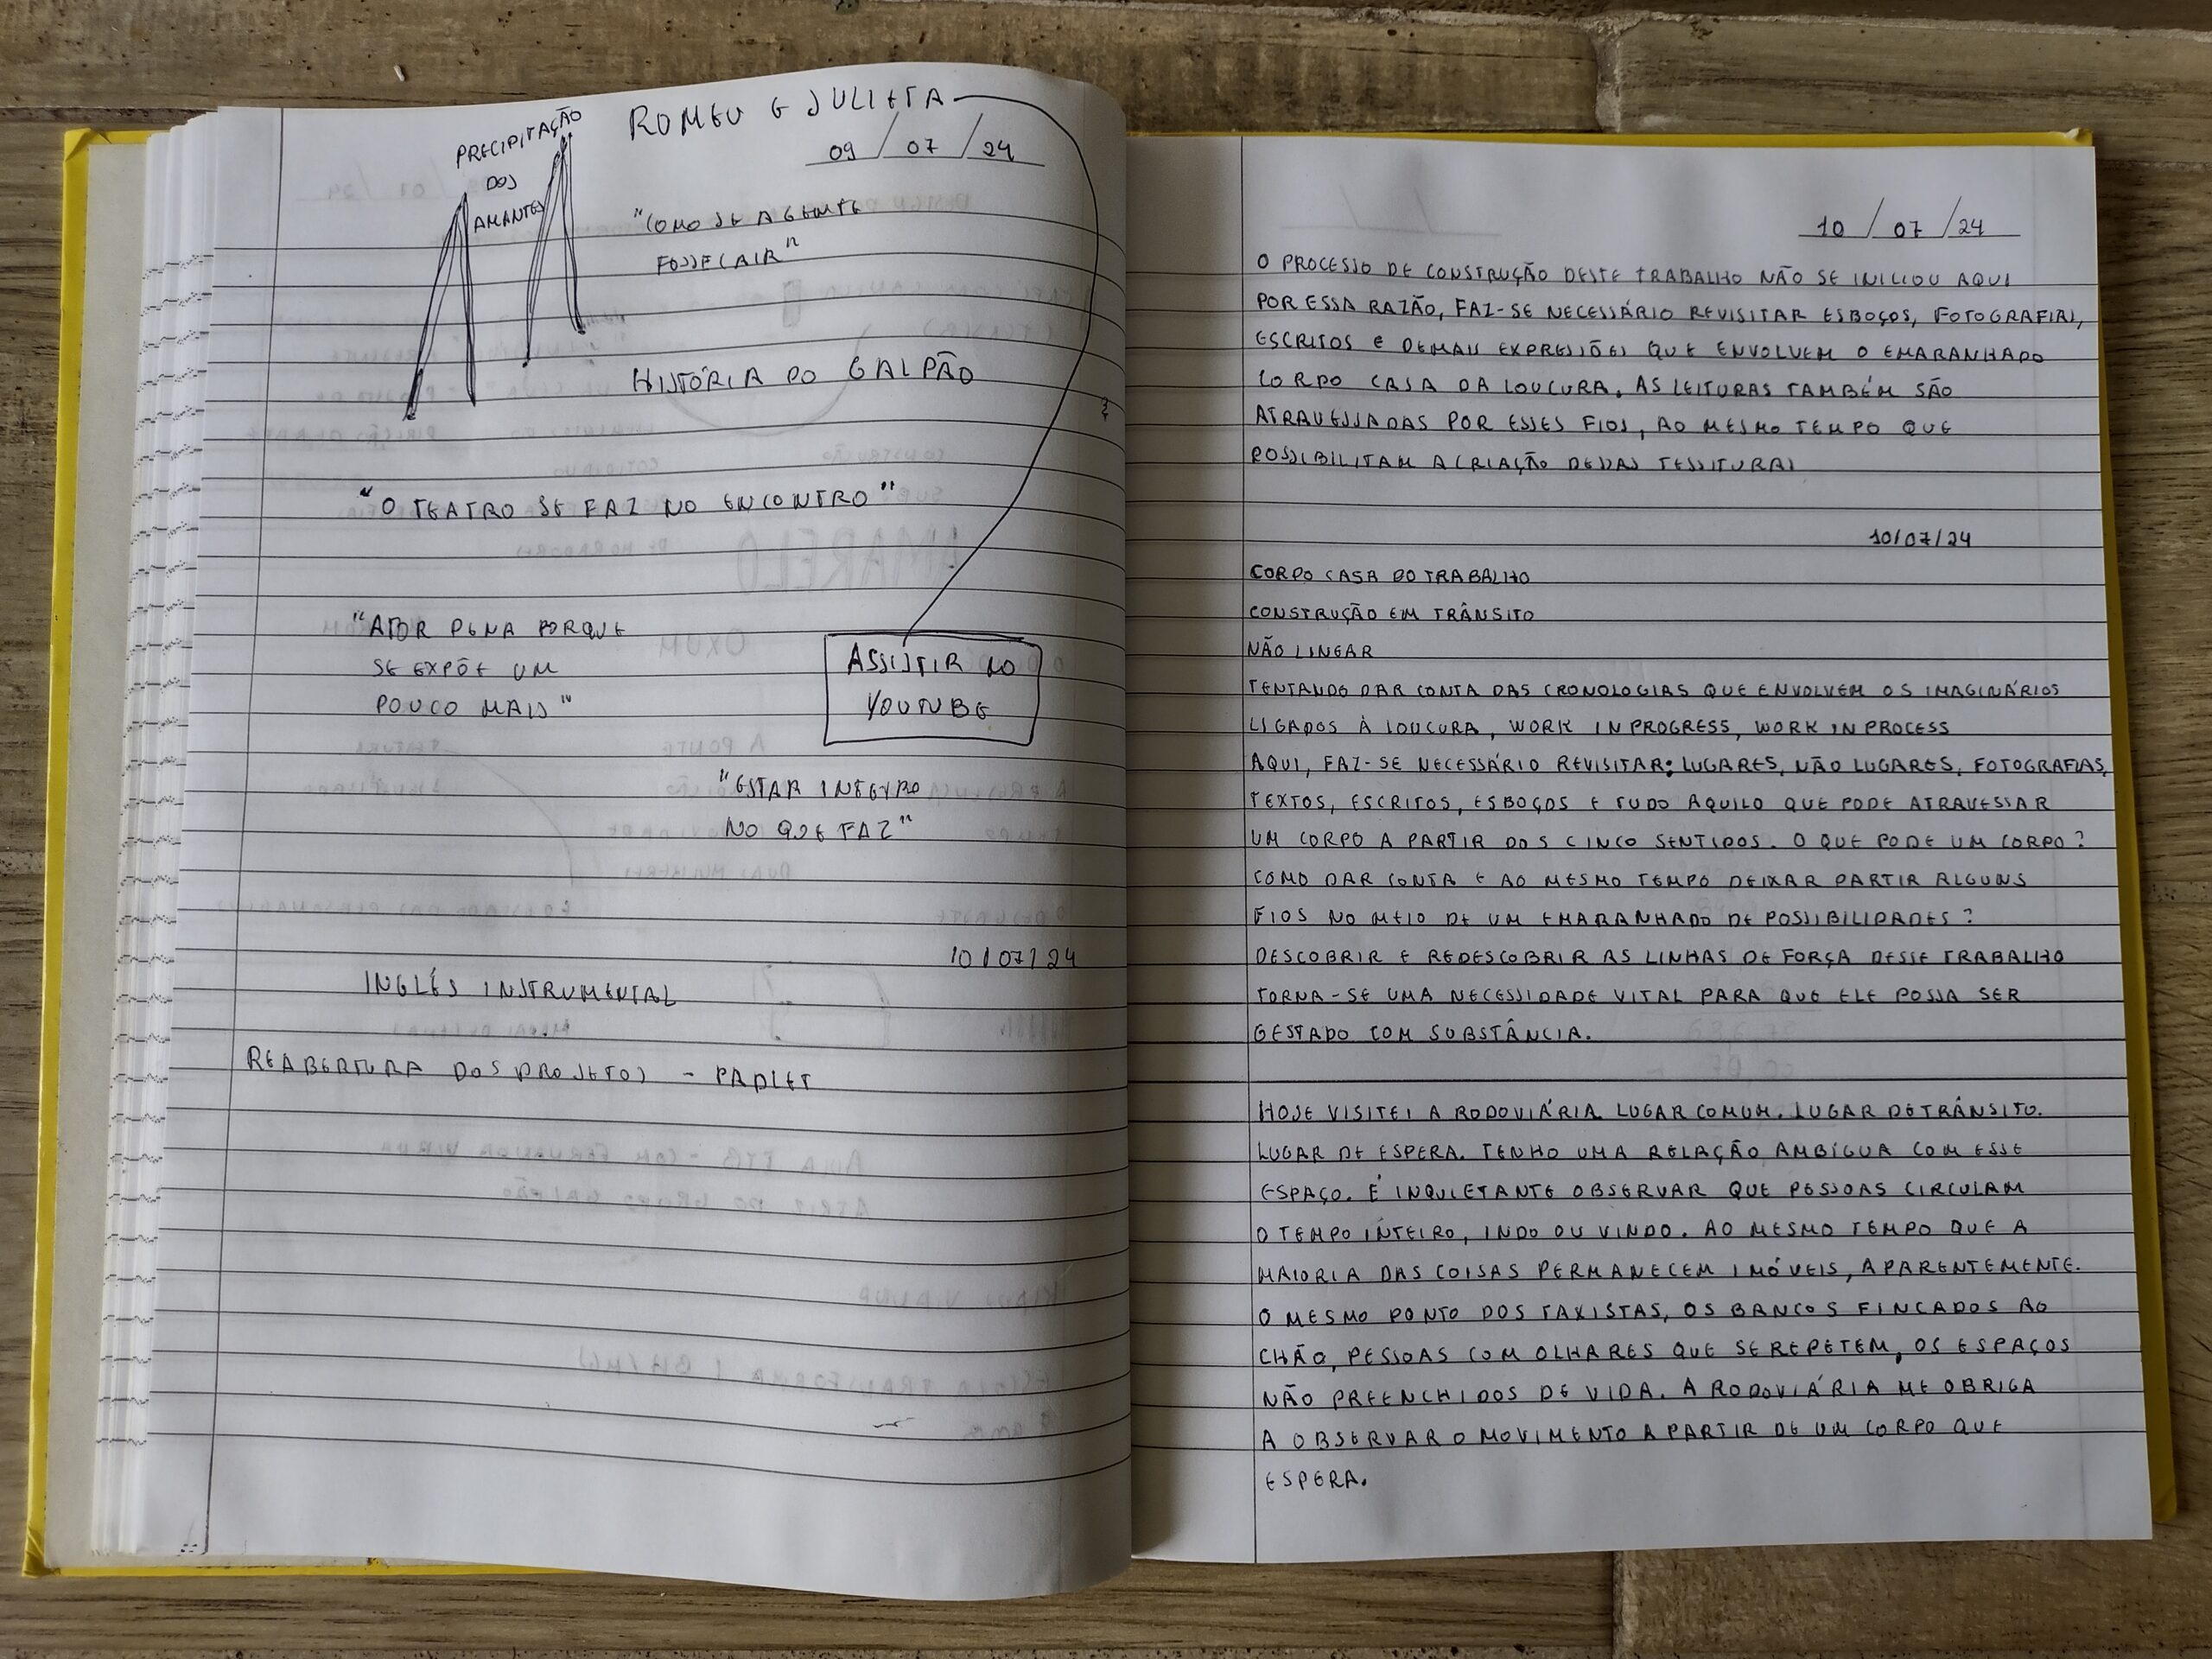 PRECIPITAÇÃO
DOS
AMANTES
ROMEU E JULIETA
09/07/24
"COMO SE A GENTE
FOSSE CAIR"
HISTÓRIA DO GALPÃO
"O TEATRO SE FAZ NO ENCONTRO"
"ATOR PENA PORQUE
SE EXPÕE UM
POUCO MAIS"
ASSISTIR NO
YOUTUBE
"ESTAR INTEIRO
NO QUE FAZ"
10/07/24
INGLÊS INSTRUMENTAL
REABERTURA DOS PROJETOS - PADLET
10/07/24
O PROCESSO DE CONSTRUÇÃO DESTE TRABALHO NÃO SE INICIOU AQUI
POR ESSA RAZÃO, FAZ-SE NECESSÁRIO REVISITAR ESBOÇOS, FOTOGRAFIAS,
ESCRITOS E DEMAIS EXPRESSÕES QUE ENVOLVEM O EMARANHADO
CORPO CASA DA LOUCURA. AS LEITURAS TAMBÉM SÃO
ATRAVESSADAS POR ESSES FIOS, AO MESMO TEMPO QUE
POSSIBILITAM A CRIAÇÃO DESSAS TESSITURAS
10/07/24
CORPO CASA DO TRABALHO
CONSTRUÇÃO EM TRÂNSITO
NÃO LINEAR
TENTANDO DAR CONTA DAS CRONOLOGIAS QUE ENVOLVEM OS IMAGINÁRIOS
LIGADOS À LOUCURA, WORK IN PROGRESS, WORK IN PROCESS
AQUI, FAZ-SE NECESSÁRIO REVISITAR: LUGARES, NÃO LUGARES, FOTOGRAFIAS,
TEXTOS, ESCRITOS, ESBOÇOS E TUDO AQUILO QUE PODE ATRAVESSAR
UM CORPO A PARTIR DOS CINCO SENTIDOS. O QUE PODE UM CORPO?
COMO DAR CONTA E AO MESMO TEMPO DEIXAR PARTIR ALGUNS
FIOS NO MEIO DE UM EMARANHADO DE POSSIBILIDADES?
DESCOBRIR E REDESCOBRIR AS LINHAS DE FORÇA DESSE TRABALHO
TORNA-SE UMA NECESSIDADE VITAL PARA QUE ELE POSSA SER
GESTADO COM SUBSTÂNCIA.
HOJE VISITEI A RODOVIÁRIA. LUGAR COMUM. LUGAR DE TRÂNSITO.
LUGAR DE ESPERA. TENHO UMA RELAÇÃO AMBÍGUA COM ESSE
ESPAÇO. É INQUIETANTE OBSERVAR QUE PESSOAS CIRCULAM
O TEMPO INTEIRO, INDO OU VINDO. AO MESMO TEMPO QUE A
MAIORIA DAS COISAS PERMANECEM IMÓVEIS, APARENTEMENTE.
O MESMO PONTO DOS TAXISTAS, OS BANCOS FINCADOS AO
CHÃO, PESSOAS COM OLHARES QUE SE REPETEM, OS ESPAÇOS
NÃO PREENCHIDOS DE VIDA. A RODOVIÁRIA ME OBRIGA
A OBSERVAR O MOVIMENTO A PARTIR DE UM CORPO QUE
ESPERA.